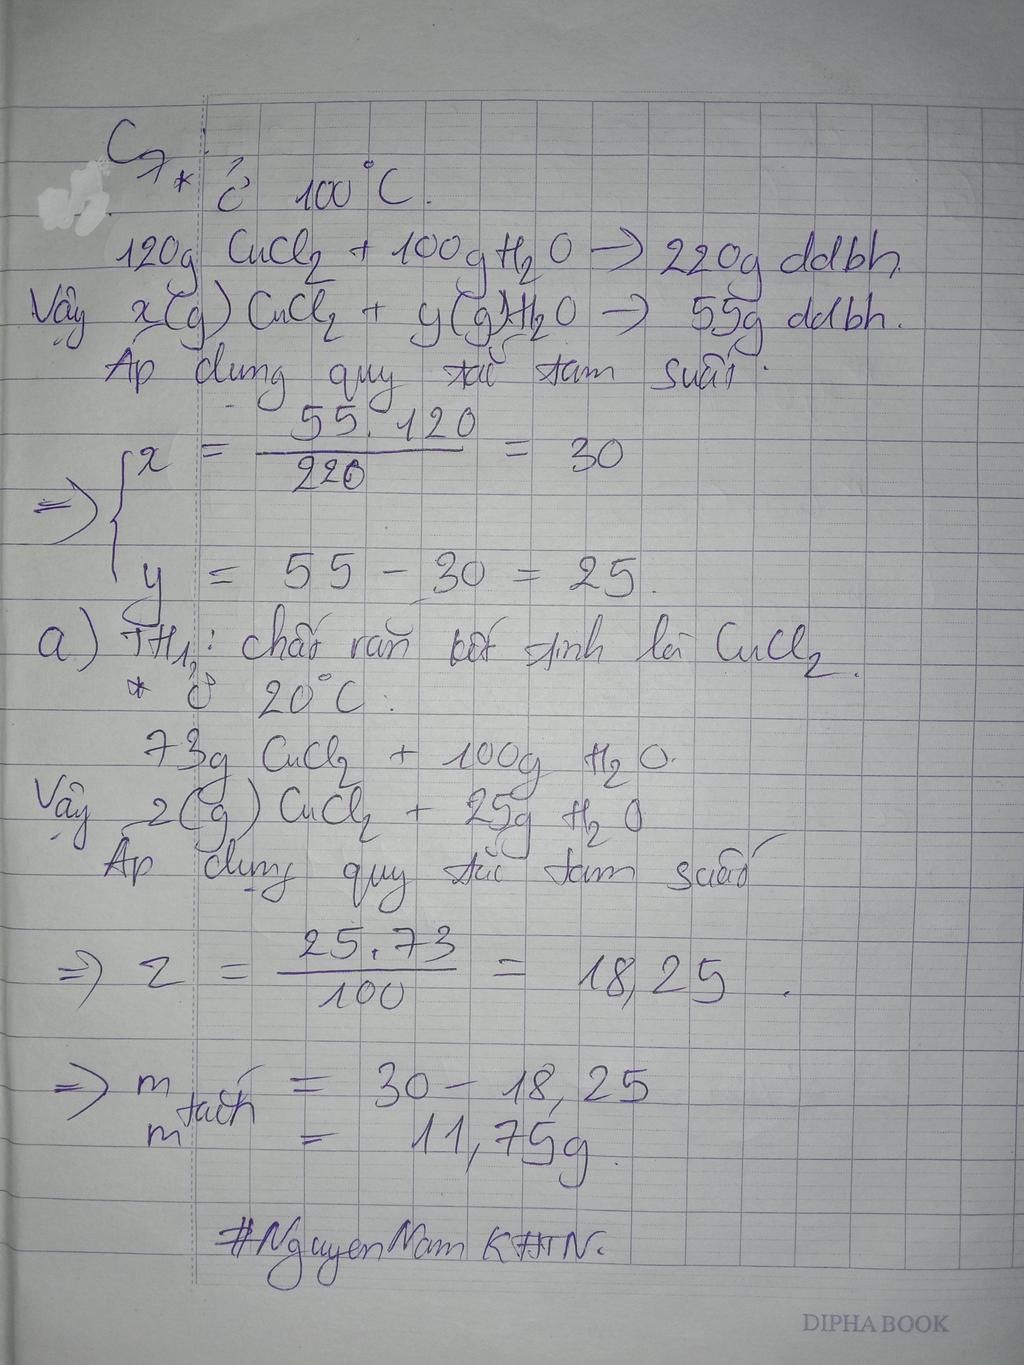 C7.
* Ở 100°C.
120g CuCl2 + 100g H2O → 220g ddbh.
Vậy x(g) CuCl2 + y(g) H2O → 55g ddbh.
Áp dụng quy tắc tam suất.
⇒ { x = 55.120 / 220 = 30
y = 55 - 30 = 25.
a) TH1: chất rắn kết tinh là CuCl2.
* Ở 20°C:
73g CuCl2 + 100g H2O.
Vậy z(g) CuCl2 + 25g H2O
Áp dụng quy tắc tam suất
⇒ z = 25.73 / 100 = 18,25.
⇒ m tách = 30 - 18,25
m = 11,75g.
#NguyenNam KHTN.
DIPHA BOOK